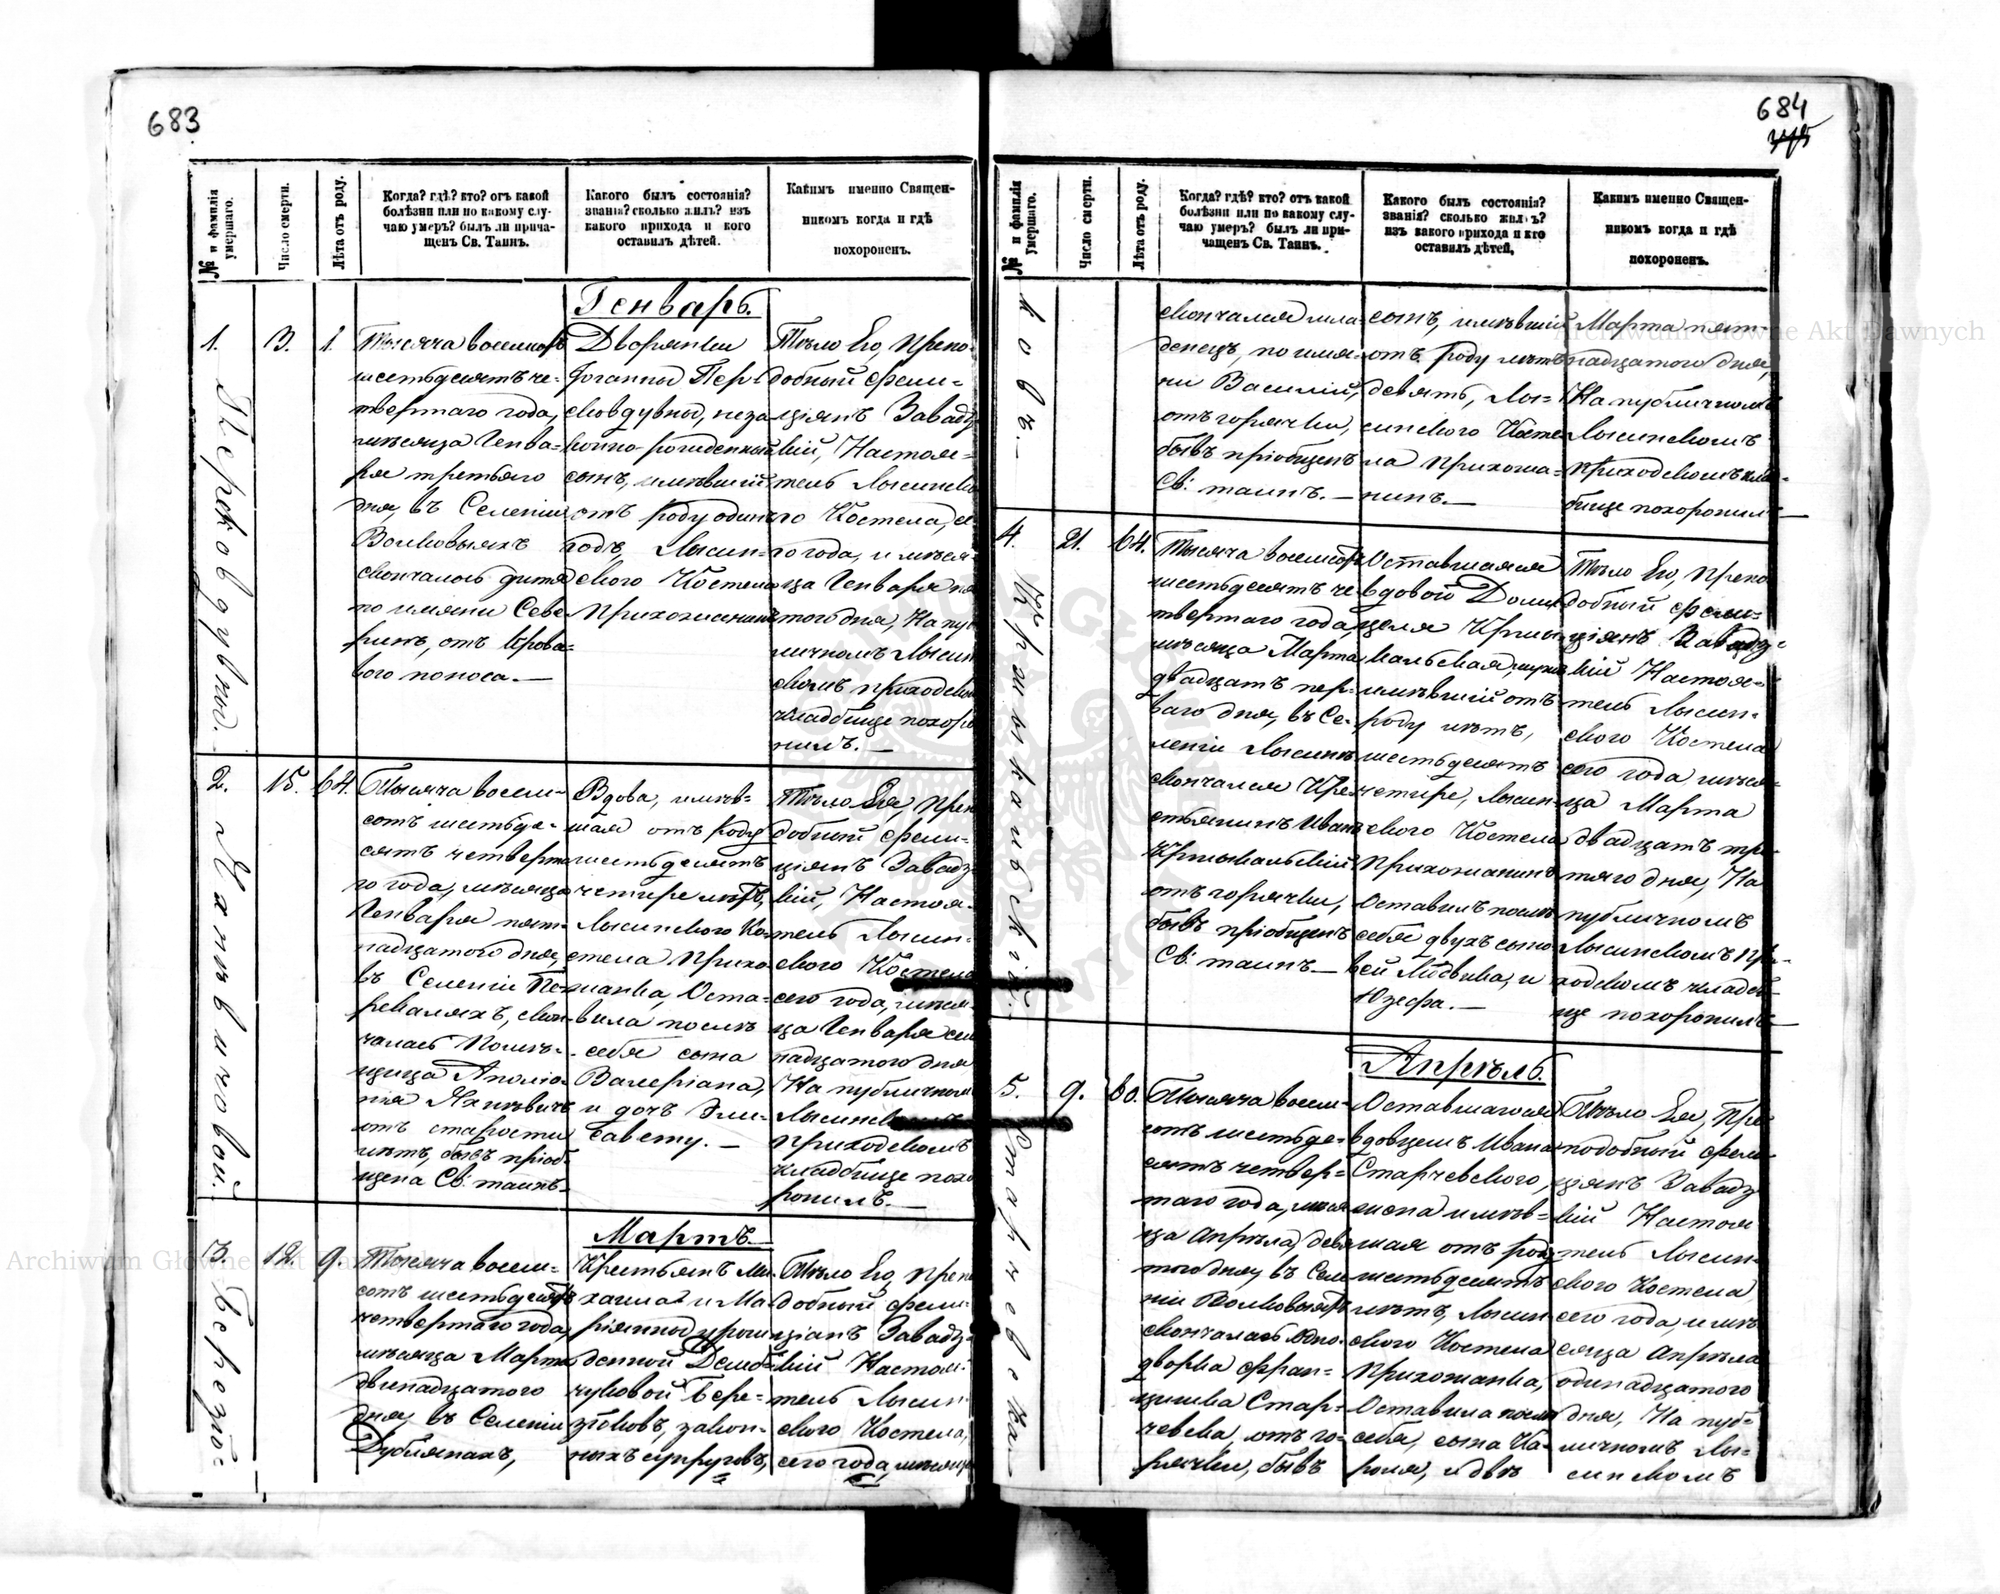 683
№ и фамилія умершаго.
Число смерти.
Лѣта отъ роду.
Когда? гдѣ? кто? отъ какой
болѣзни или по какому слу-
чаю умеръ? былъ ли прича-
щенъ Св. Таинъ.
Какого былъ состоянія?
званія? сколько жилъ? изъ
какого прихода и кого
оставилъ дѣтей.
Какимъ именно Священ-
никомъ когда и гдѣ
похороненъ.
Генварь.
1.
3.
1.
Тысяча восемьсотъ
шестьдесятъ че-
твертаго года,
мѣсяца Генва-
ря третьяго
дня, въ Селеніи
Волковыяхъ
скончалось дитя
по имяни Севе
ринъ, отъ крова-
ваго поноса.—
Дворянки
Іоганны Пер-
ковдувны, неза
конно-рожденный
сынъ, имѣвшій
отъ роду одинъ
годъ, Лысин-
скаго Костела
Прихожанинъ
Тѣло Его, Препо-
добный Фели-
ціянъ Завадз
кій, Настоя-
тель Лысинска
го Костела, се
го года, и мѣся-
ца Генваря пя
того дня, На пуб
личномъ Лысин
скомъ приходском
кладбище похоро
нилъ.—
2.
15.
64.
Яхневичовой.
Тысяча восемь-
сотъ шестьде-
сятъ четверта
го года, мѣсяца
Генваря пят-
надцатого дня,
въ Селеніи Пе
рекаляхъ, скон-
чалась Помѣ-
щица Аполло-
нія Яхневичъ
отъ старости
лѣтъ, бывъ пріоб-
щена Св: таинъ-
Вдова, имѣв-
шая отъ роду
шестьдесятъ
четире лѣтъ,
Лысинского Ко-
стела Прихо
жанка, Оста-
вила послѣ
себя сына
Валеріана,
и дочь Эли-
савету.—
Тѣло Ея, Преп
добный Фели-
ціянъ Завадз-
кій, Настоя-
тель Лысин-
ского Костела
сего года, мѣся-
ца Генваря сем
надцатого дня
На публичном
Лысинскомъ
приходскомъ
кладбище похо
ронилъ.—
Мартъ.
3.
12.
9.
Тысяча восемь-
сотъ шестьдесятъ
четвертаго года,
мѣсяца Марта
двенадцатого
дня, въ Селеніи
Дублянахъ,
Крестьянъ Ми-
хаила и Ма
ріянной урож
денной Демб
чуковой Бере-
зюковъ, закон-
ныхъ супруговъ,
Тѣло Его, Препо
добный Фели-
ціанъ Завадз-
кій Настоя-
тель Лысин-
ского Костела,
сего года, мѣсяца
684
№ и фамилія умершаго.
Число смерти.
Лѣта отъ роду.
Когда? гдѣ? кто? отъ какой
болѣзни или по какому слу-
чаю умеръ? былъ ли при-
чащенъ Св. Таинъ.
Какого былъ состоянія?
званія? сколько жилъ?
изъ какого прихода и кто
оставилъ дѣтей.
Какимъ именно Священ-
никомъ когда и гдѣ
похороненъ.
скончался мла-
денецъ, по имя-
ни Василій,
отъ горячки,
бывъ пріобщенъ
Св: таинъ.—
сынъ, имѣвшій
отъ роду лѣтъ
девять, Лы-
синского Косте
ла Прихожа-
нинъ.—
Марта пят-
надцатого дня,
На публичномъ
Лысинскомъ
приходскомъ кла-
бище похоронил—
4.
21.
64.
Кржижальскій.
Тысяча восемьсотъ
шестьдесятъ че
твертаго года,
мѣсяца Марта
двадцатъ пер-
ваго дня, въ Се-
леніи Лысинѣ
скончался Кре-
стьянинъ Иванъ
отъ горячки,
бывъ пріобщенъ
Св: таинъ—
вдовой Доми
роду лѣтъ,
шестьдесятъ
четире, Лысин-
ского Костела
Прихожанинъ
Оставилъ послѣ
себя двухъ сыно
вей Людвика, и
Юзефа.—
Тѣло Его, Препо
добный Фели-
ціянъ Завадз-
кій Настоя-
тель Лысин-
ского Костела
сего года мѣся-
ца Марта
двадцатъ тре-
тяго дня, На
публичномъ
Лысинскомъ При-
ходскомъ кладби-
ще похоронилъ—
Апрѣль.
5.
9.
60.
Старчевска
Тысяча восемь-
сотъ шестьде-
сятъ четвер-
таго года, мѣся
ца Апрѣла девя
того дня, въ Селе
ніи Волковыяхъ
скончалась Одно-
дворка Фран-
цишка Стар-
чевска, отъ го-
рячки, бывъ
Оставшагося
вдовцемъ Ивана
Старчевского,
жена имѣв-
шая отъ роду
шестьдесятъ
лѣтъ, Лысин
ского Костела
Прихожанка,
Оставила послѣ
себя, сына Ка-
роля, и двѣ
Тѣло Ея, Пре
подобный Фели
ціянъ Завадз
кій Настоя
тель Лысин-
ского Костела
сего года, и мѣ
сяца Апрѣла
одинадцатого
дня, На пуб-
личномъ Лы-
синскомъ
Archiwum Główne Akt Dawnych
Archiwum Główne Akt Dawnych